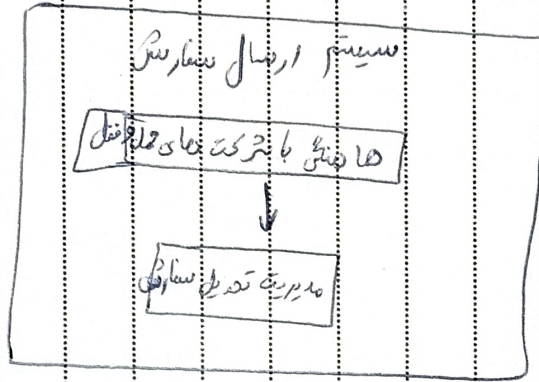 سیستم ارسال سفارش
هماهنگی با شرکت های حمل و نقل
مدیریت تحویل سفارش